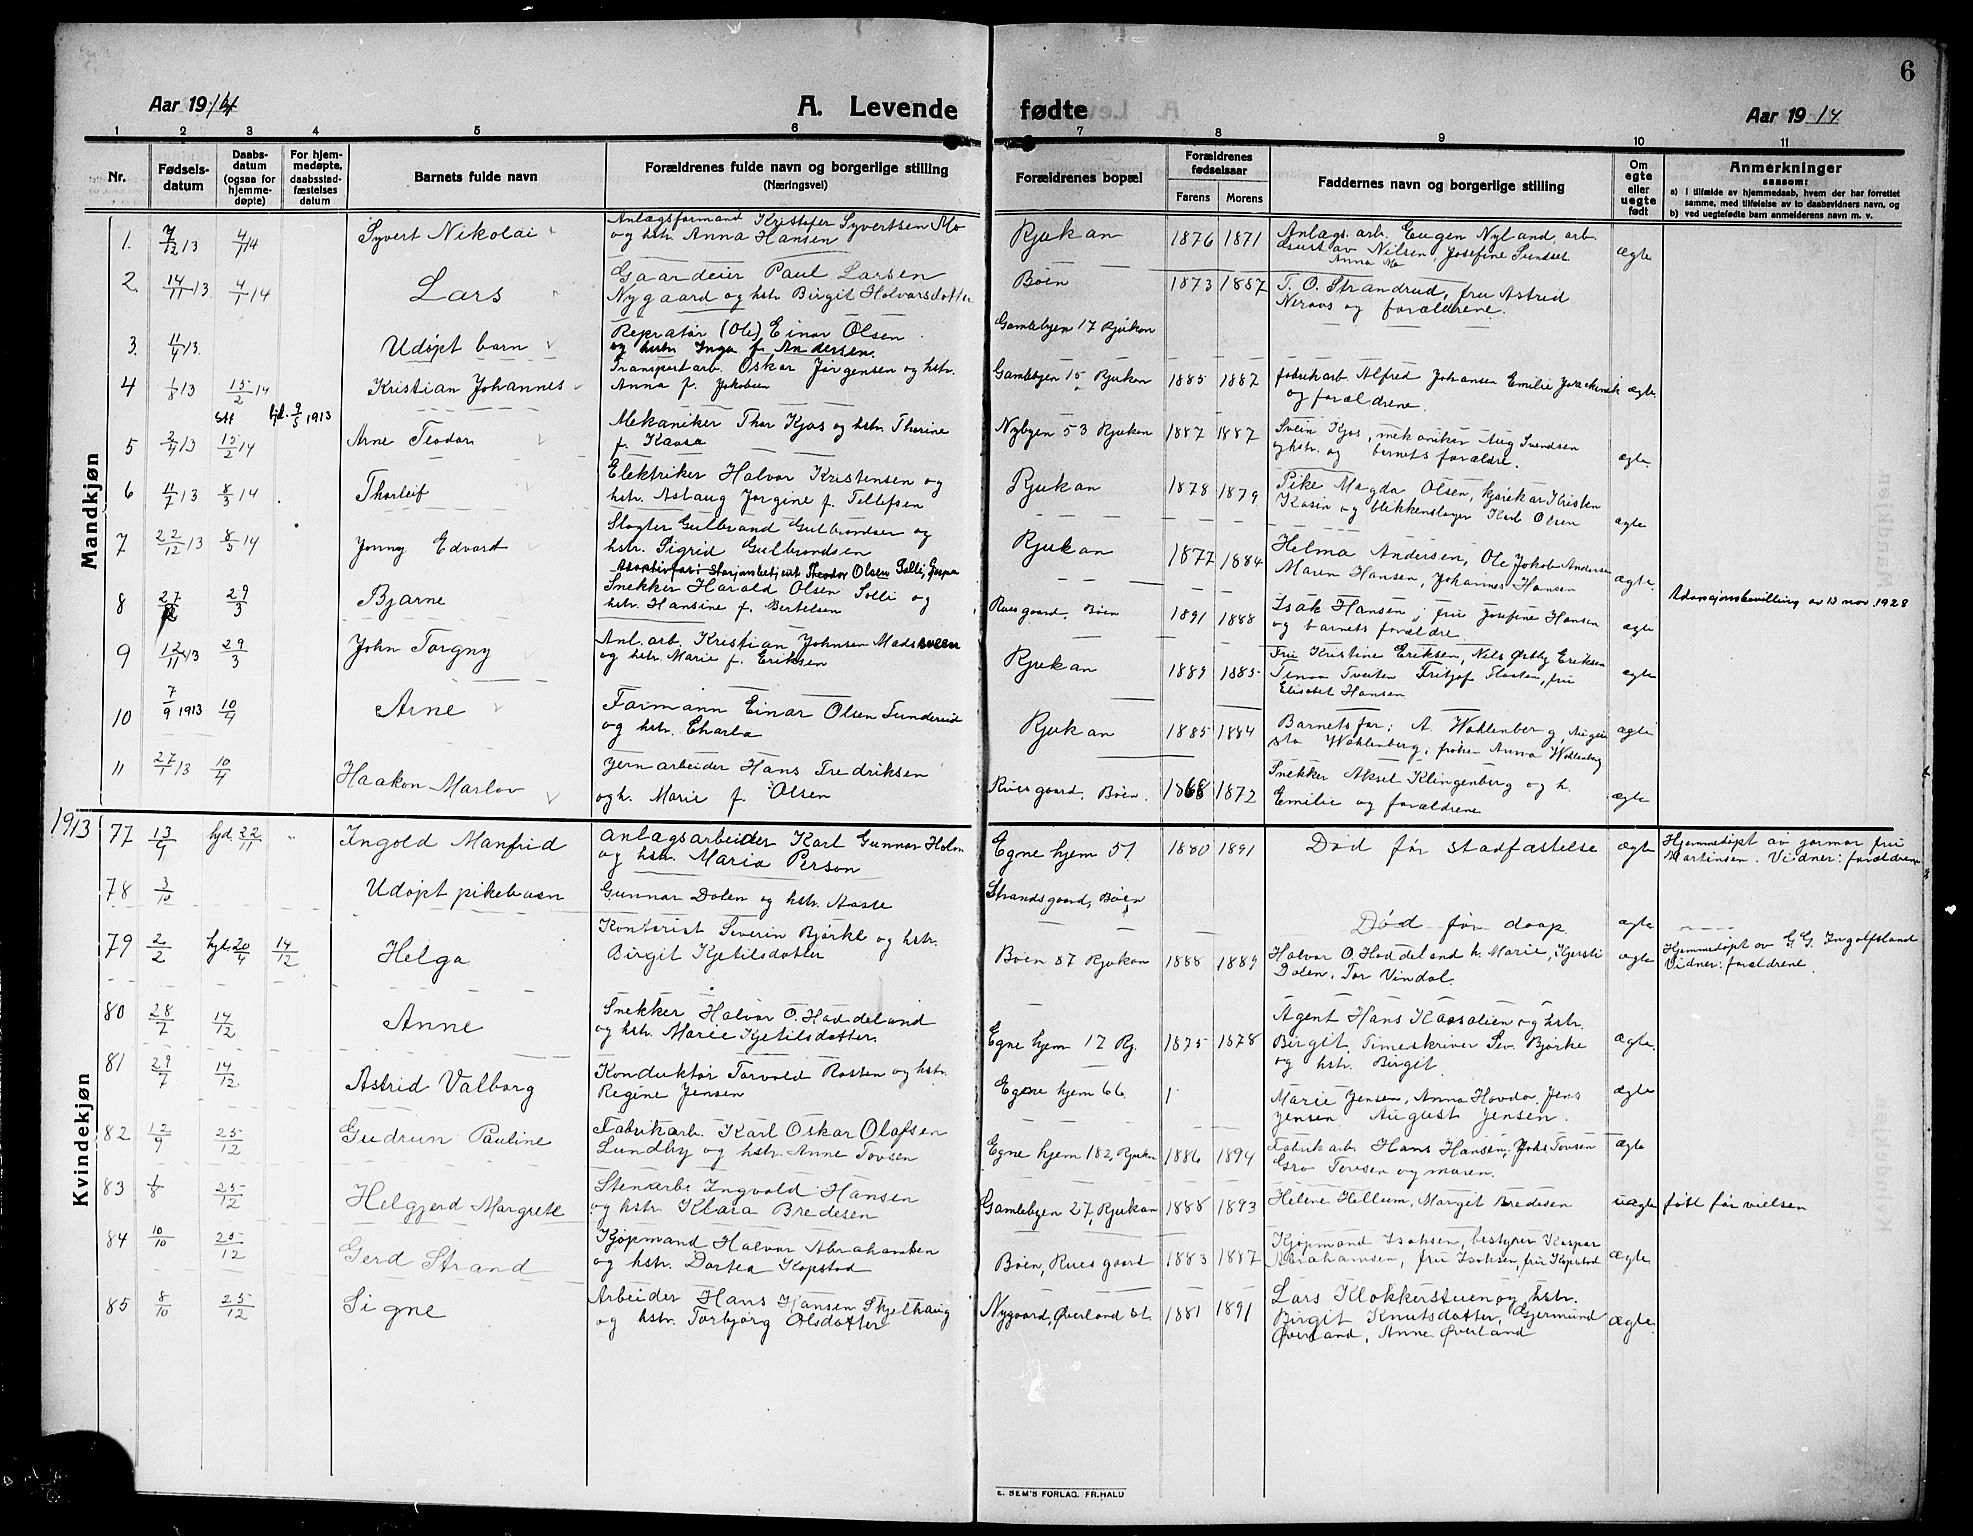 6
Aar 1914
A. Levende fødte
Aar 1914
1 2 3 4 5 6 7 8 9 10 11
Nr.
Fødsels-
datum
Daabs-
datum
(ogsaa for
hjemme-
døpte)
For hjem-
medøpte,
daabsstad-
fæstelses
datum
Barnets fulde navn
Forældrenes fulde navn og borgerlige stilling
(Næringsvei)
Forældrenes bopæl
Forældrenes
fødselsaar
Farens Morens
Faddernes navn og borgerlige stilling
Om
egte
eller
uegte
født
Anmerkninger
saasom:
a) i tilfælde av hjemmedaab, hvem der har forrettet
samme, med tilføielse av to daabsvidners navn, og
b) ved uegtefødte barn anmelderens navn m. v.
Mandkjøn
1. 7/12 13 4/1 14 Syvert Nikolai
Anlægsformand Kristofer Syvertsen Mo
og hstr. Anna Hansen
Rjukan 1876 1871
Anlags. arb. Eugen Nyland, arb.
Nilsen, Josefine Sundset
Anna Mo
ægte
2. 14/11 13. 4/1 14 Lars
Gaardeier Paul Larsen
Nygaard og hstr Birgit Holvarsdotter
Bøen 1873 1887
T. O. Strandrud, fru Astrid
og forældrene.
3. 11/4 13. Udøpt barn
Repratør (Ole) Einar Olsen
og hstr Inga f. Andersen.
Gamlebyen 17 Rjukan
4 1/8 13 15/2 14 Kristian Johannes
Transportarb. Oskar Jørgensen og hstr.
Anna f. Jakobsen
Gamlebyen 15 Rjukan 1885 1887
fabrikarb. Alfred Johansen Emilie
og forældrene.
ægte
5 2/4 13 15/2 14 hjd. 9/5 1913 Arne Teodor
Mekaniker Thor Kjos og hstr Thorine
f. Kaasa
Nybyen 53 Rjukan 1887 1887
Svein Kjos, mekaniker Aug Svendsen
og hstr. og barnets forældre.
ægte
6 11/7 13 8/3 14 Thorleif
Elektriker Halvor Kristensen og
hstr. Aslaug Jørgine f. Tellefsen
Rjukan 1878 1879
Pike Magda Olsen, kjørekar Kristen
Kasin og blikkenslager Karl Olsen
ægte
7 22/12 13 8/3 14 Jonny Edvart
Slagter Gulbrand Gulbrandsen og
hstr. Sigrid Gulbrandsen
Rjukan 1877 1884
Helma Andersen, Ole Jakob Andersen
Maren Hansen, Johannes Hansen
ægte.
8 27/12 29/3 Bjarne
Adoptivfar: Theodor Olsen Solli,
Snekker Harald Olsen Solli og
hstr. Hansine f. Bertelsen
Ruesgaard, Bøen 1891 1888
Isak Hansen, fru Josefine Hansen
og barnets forældre
ægte
Adopsjonsbevilling av 13 nov. 1928
9 12/11 13 29/3 John Torgny
Anl. arb. Kristian Johnsen
og hstr. Marie f. Eriksen
Rjukan 1889 1885
Fru Kristine Eriksen, Nils Ørbby Eriksen
Tinaa Tveiten Fritjof Flaaten, fru
Elisabet Hansen
ægte
10 7/9 1913 10/4 Arne
Formann Einar Olsen Sundereid
og hstr. Charla
Rjukan 1885 1884
Barnets far; A Wahlenberg, Augu
sta Wahlenberg; frøken Anna Wahlenberg
ægte
11 27/1 13 10/4 Haakon Marlov
Jernarbeider Hans Fredriksen
og h. Marie f. Olsen
Ruesgaard, Bøen. 1868 1872
Snekker Aksel Klingenberg og h.
Emilie og forældrene
ægte
1913
Kvindekjøn
77 13/9 hjd. 22/11 " Ingold Manfrid
Anlægsarbeider Karl Gunnar Holm
og hstr. Maria Person
Egne hjem 51 1880 1891
Død før stadfæstelse
ægte
Hjemmedøpt av jormor fru
Martinsen. Vidner: forældrene
78 3/10 Udøpt pikebarn
Gunnar Dalen og hstr. Aasse
Strandsgaard, Bøen
Død før daap
ægte
79 2/2 hjd. 20/4 14/12 Helga
Kontorist Severin Bjørke og hstr.
Birgit Kjetilsdatter
Bøen 87 Rjukan 1888 1889
Halvor O. Haddeland h. Marie, Kjersti
Dalen, Tor Vindal.
ægte
Hjemmedøpt av G. G. Ingolfsland
Vidner: forældrene.
80 28/7 14/12 Anne
Snekker Halvor O. Haddeland
og hstr. Marie Kjetilsdatter.
Egne hjem 17 Rj. 1875 1878
Agent Hans Kaasalien og hstr.
Birgit, Timeskriver Sev. Bjørke
og hstr. Birgit.
ægte.
81 29/7 14/12 Astrid Valborg
Konduktør Torvald Rosten og hstr.
Regine Jensen
Egne hjem 66
Marie Jensen, Anna Hovda, Jens
Jensen August Jensen.
ægte
82 12/9 25/12 Gudrun Pauline
Fabrikarb. Karl Oskar Olafsen
Lundby og hstr. Anne Tovsen
Egne hjem 182, Rjukan 1886 1894
Fabrikarb. Hans Hansen, Tovsen
Gro Tovsen og moren.
ægte
83 1/8 25/12 Helgjerd Margrete
Stenarb. Ingvald Hansen
og hstr. Klara Bredesen
Gamlebyen 27, Rjukan 1888 1893
Helene Hellum, Margit Bredesen
uægte
født før vielsen
84 10/10 25/12 Gerd Strand
Kjøpmand Halvor Abrahamsen
og hstr. Dortea Kopstad
Bøen, Ruesgaard 1883 1887
Kjøpmand Isaksen, bestyrer Kaspar
Abrahamsen, fru Isaksen, fru Kopstad
ægte
85 8/10 25/12 Signe
Arbeider Hans Hansen Skjelhaug
og hstr. Torbjørg Olsdatter
Nygaard, Øverland st. 1881 1891
Lars Klokkerstuen og hstr.
Birgit Knutsdatter, Gjermund
Øverland, Anne Øverland
ægte
E. SEM'S FORLAG. FR.HALD